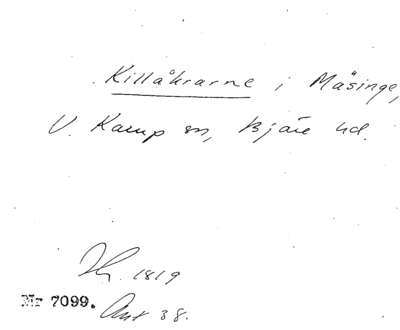 Killåkrarne i Måsinge,
V. Karup sn, Bjäre hd.
1819
Nr 7099. Ant 38.